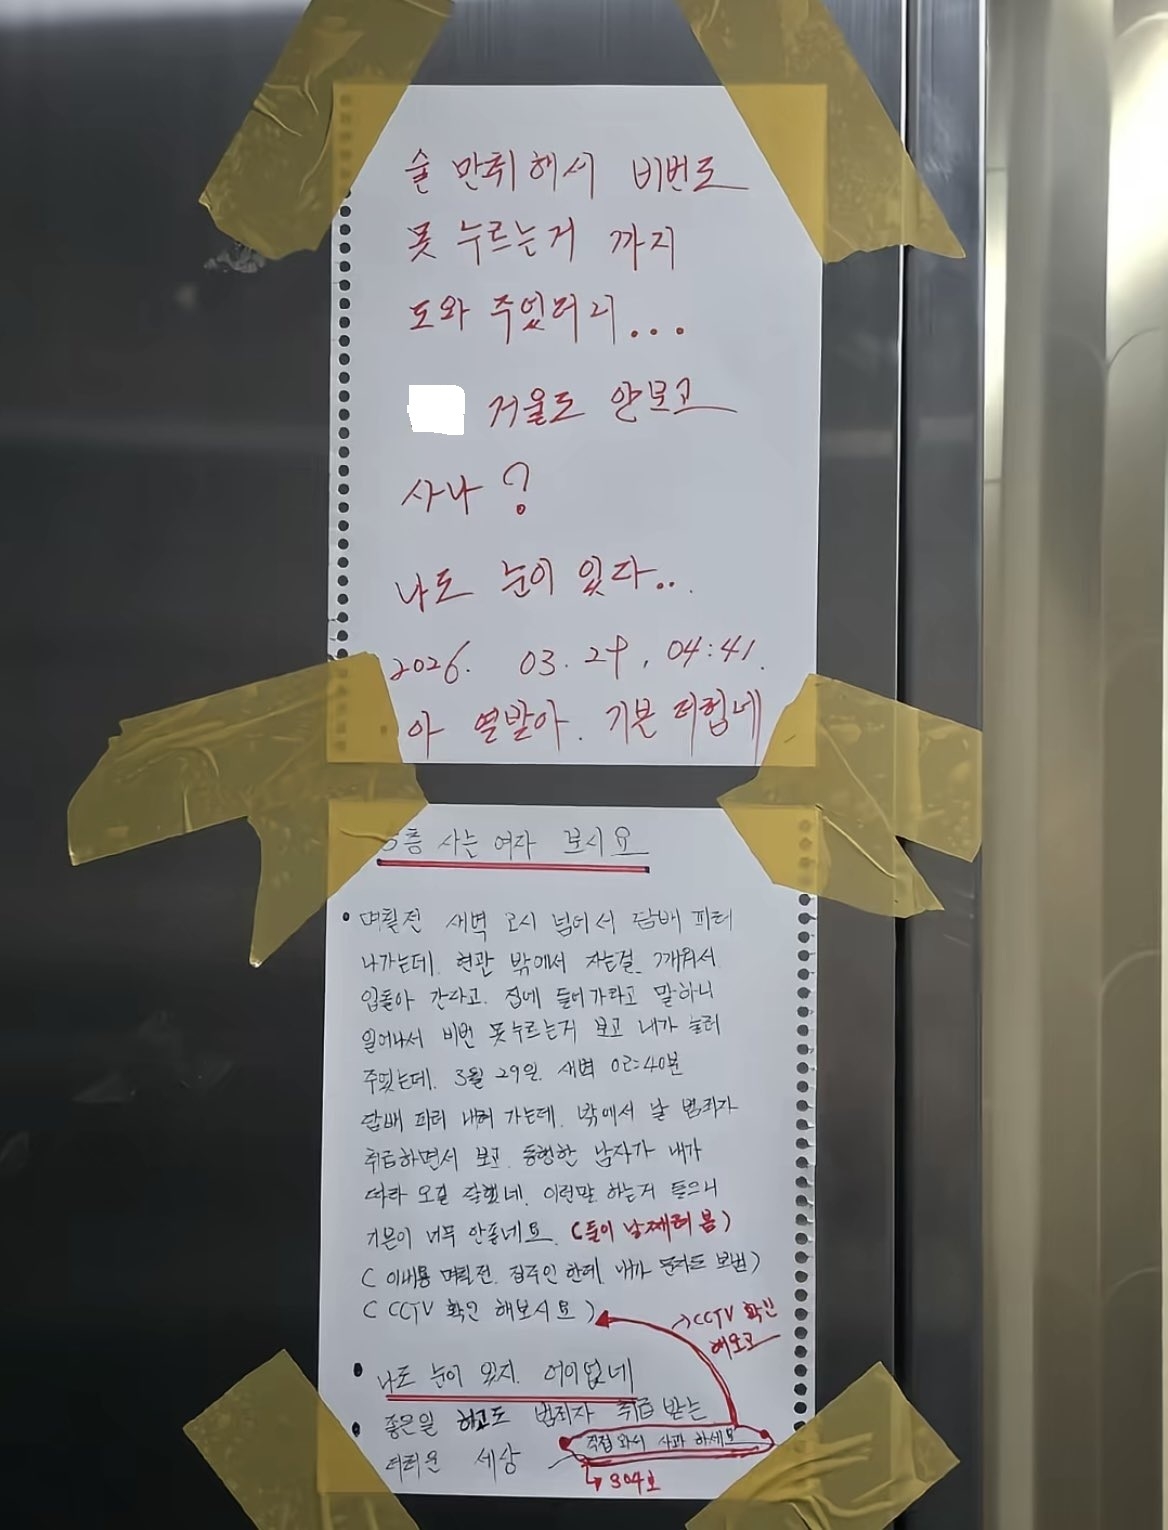 술 만취해서 비번도
못 누르는거 까지
도와 주었더니...
거울도 안보고
사나?
나도 눈이 있다..
2026. 03. 29, 04:41.
아 열받아. 기분 더럽네
층 사는 여자 보시요
• 며칠전 새벽 2시 넘어서 담배 피러
나가는데. 현관 밖에서 자는걸. 깨워서
입돌아 간다고. 집에 들어가라고 말하니
일어나서 비번 못누르는거 보고 내가 눌러
주었는데. 3월 29일. 새벽 02:40분
담배 피러 내려 가는데. 밖에서 날 범죄자
취급하면서 보고. 동행한 남자가 내가
따라 오길 잘했네. 이런말 하는거 들으니
기분이 너무 안좋네요. (둘이 날째려 봄)
( 이내용 며칠전. 집주인 한테. 내가 문자도 보냄)
( CCTV 확인 해보시요 )
→CCTV 확인
해보고
• 나도 눈이 있지. 어이없네
• 좋은일 하고도 범죄자 취급 받는
더러운 세상
직접 와서 사과 하세요
↳ 304호